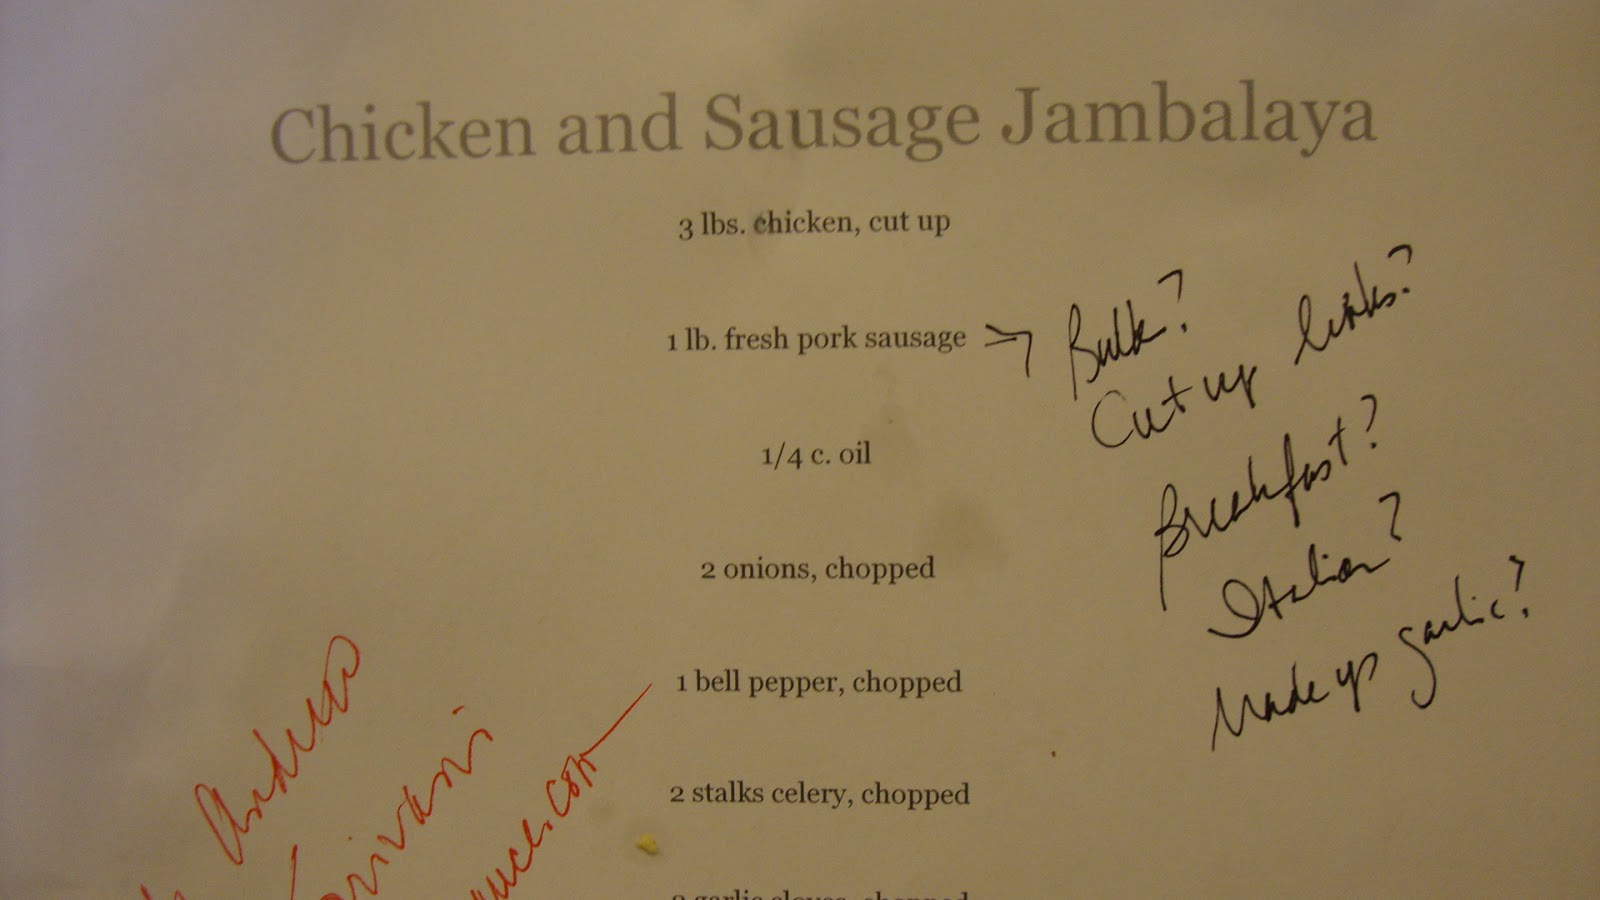 Chicken and Sausage Jambalaya
3 lbs. chicken, cut up
1 lb. fresh pork sausage
Bulk?
Cut up links?
1/4 c. oil
Breakfast?
2 onions, chopped
Italian?
Made up garlic?
1 bell pepper, chopped
2 stalks celery, chopped
garlic cloves, chopped
Andrew